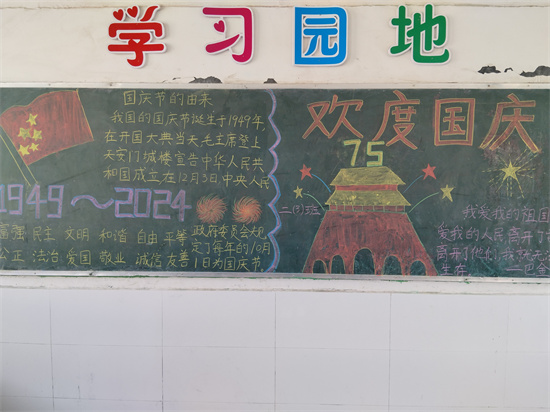 学习园地
国庆节的由来
我国的国庆节诞生于1949年,
在开国大典当天毛主席登上
天安门城楼宣告中华人民共
和国成立在12月3日中央人民
政府委员会
定了每年的10月
1日为国庆节.
1949～2024
富强 民主 文明 和谐 自由 平等
公正 法治 爱国 敬业 诚信 友善
欢度国庆
75
二(1)班
我爱我的祖国
爱我的人民离开了
离开了他们,我
生存